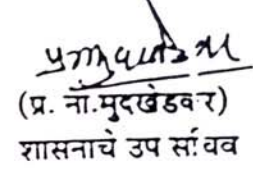 (प्र. नां.मुदखेडकर)
शासनाचे उप सचिव